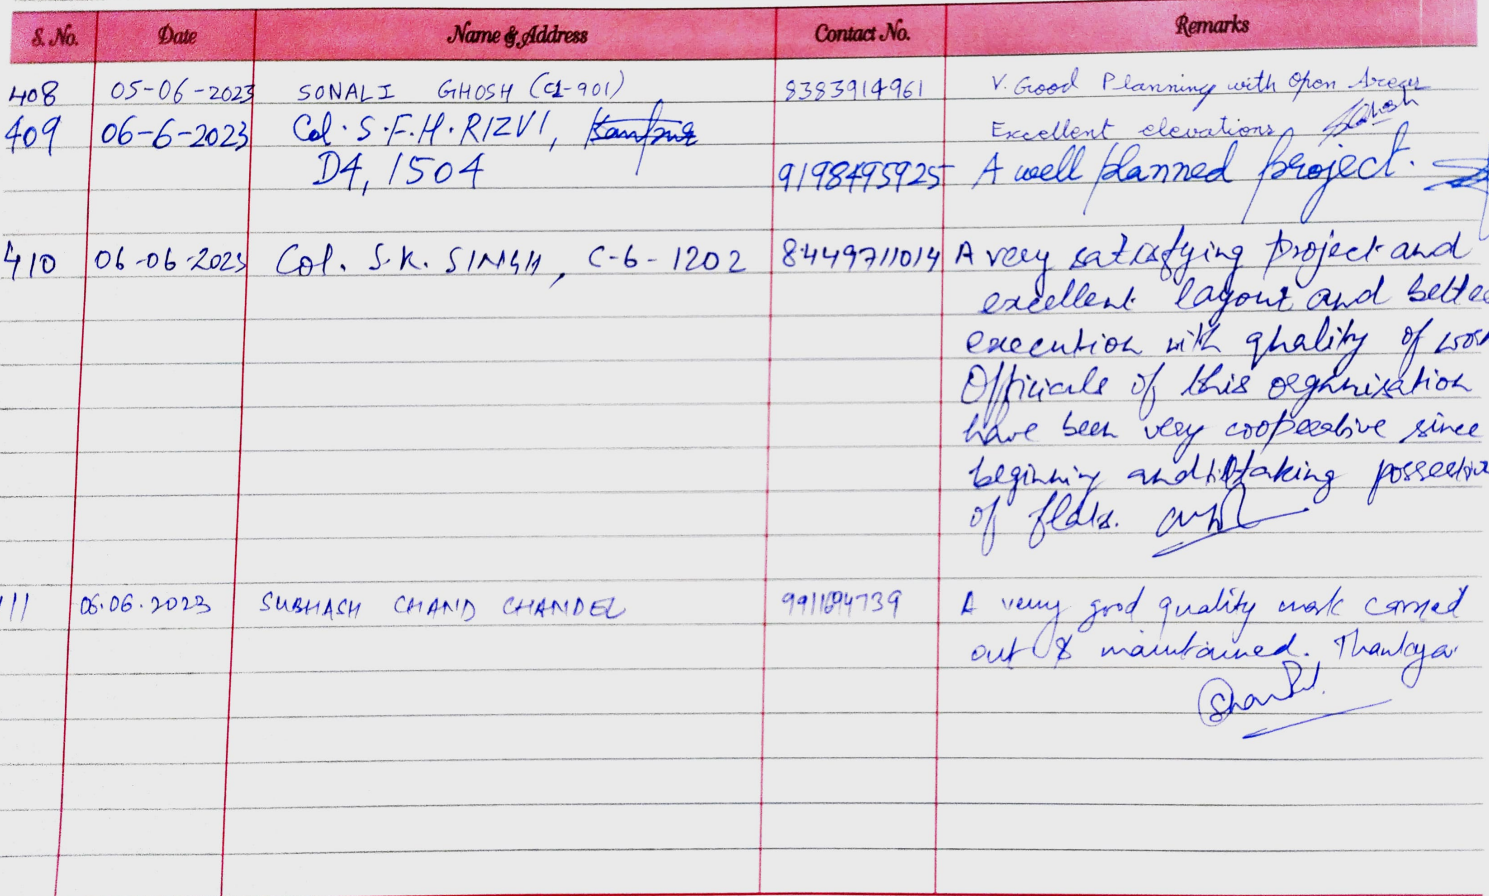 S. No. Date Name & Address Contact No. Remarks
408 05-06-2023 SONALI GHOSH (C1-901) 8383914961 V. Good Planning with Open Areas
Excellent elevations
409 06-6-2023 Col. S.F.H. RIZVI,
D4, 1504 9198495925 A well planned project.
410 06-06-2023 Col. S.K. SINGH, C-6-1202 8449711014 A very satisfying project and
excellent layout and better
execution with quality of work
Officials of this organisation
have been very cooperative since
beginning and till taking possession
of flats.
111 06.06.2023 SUBHASH CHAND CHANDEL 9911694739 A very good quality work carried
out & maintained. Thankyou